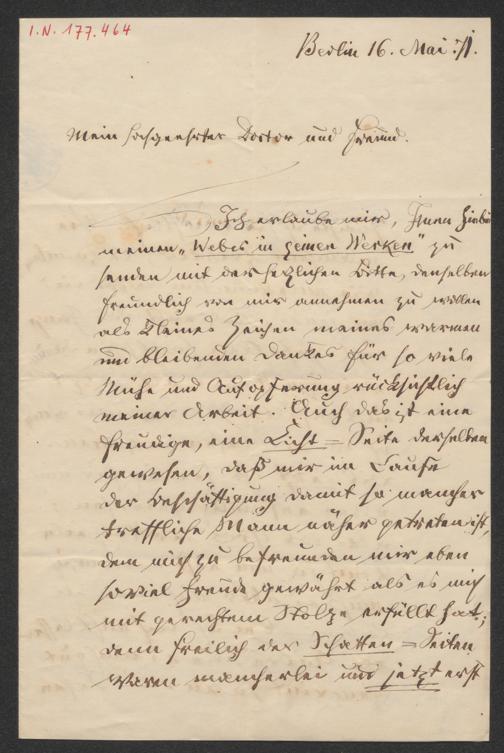 I.N. 177.464
Berlin 16. Mai 71.
Mein hochgeehrter Doctor und Freund.
Ich erlaube mir, Ihnen hierbei
meinen „Weber in seinen Werken" zu
senden mit der herzlichen Bitte, denselben
freundlich von mir annehmen zu wollen
als kleines Zeichen meines warmen
und bleibenden Dankes für so viele
Mühe und Aufopferung rücksichtlich
meiner Arbeit. Auch das ist eine
freudige, eine Licht=Seite derselben
gewesen, daß mir im Laufe
der Beschäftigung damit so mancher
treffliche Mann näher getreten ist,
dem mich zu befreunden mir eben
soviel Freude gewährt als es mich
mit gerechtem Stolze erfüllt hat;
denn freilich der Schatten=Seiten
waren mancherlei und jetzt erst